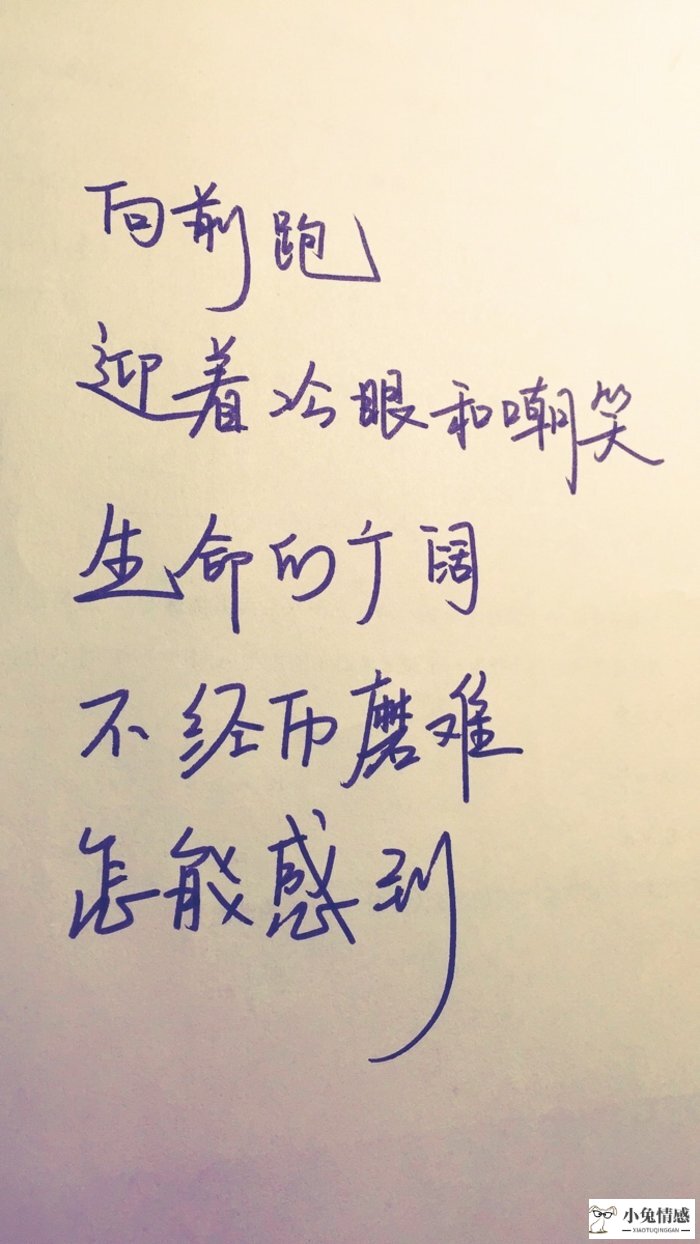 向前跑
迎着冷眼和嘲笑
生命的广阔
不经历磨难
怎能感到
小兔情感
XIAOTUQINGGAN